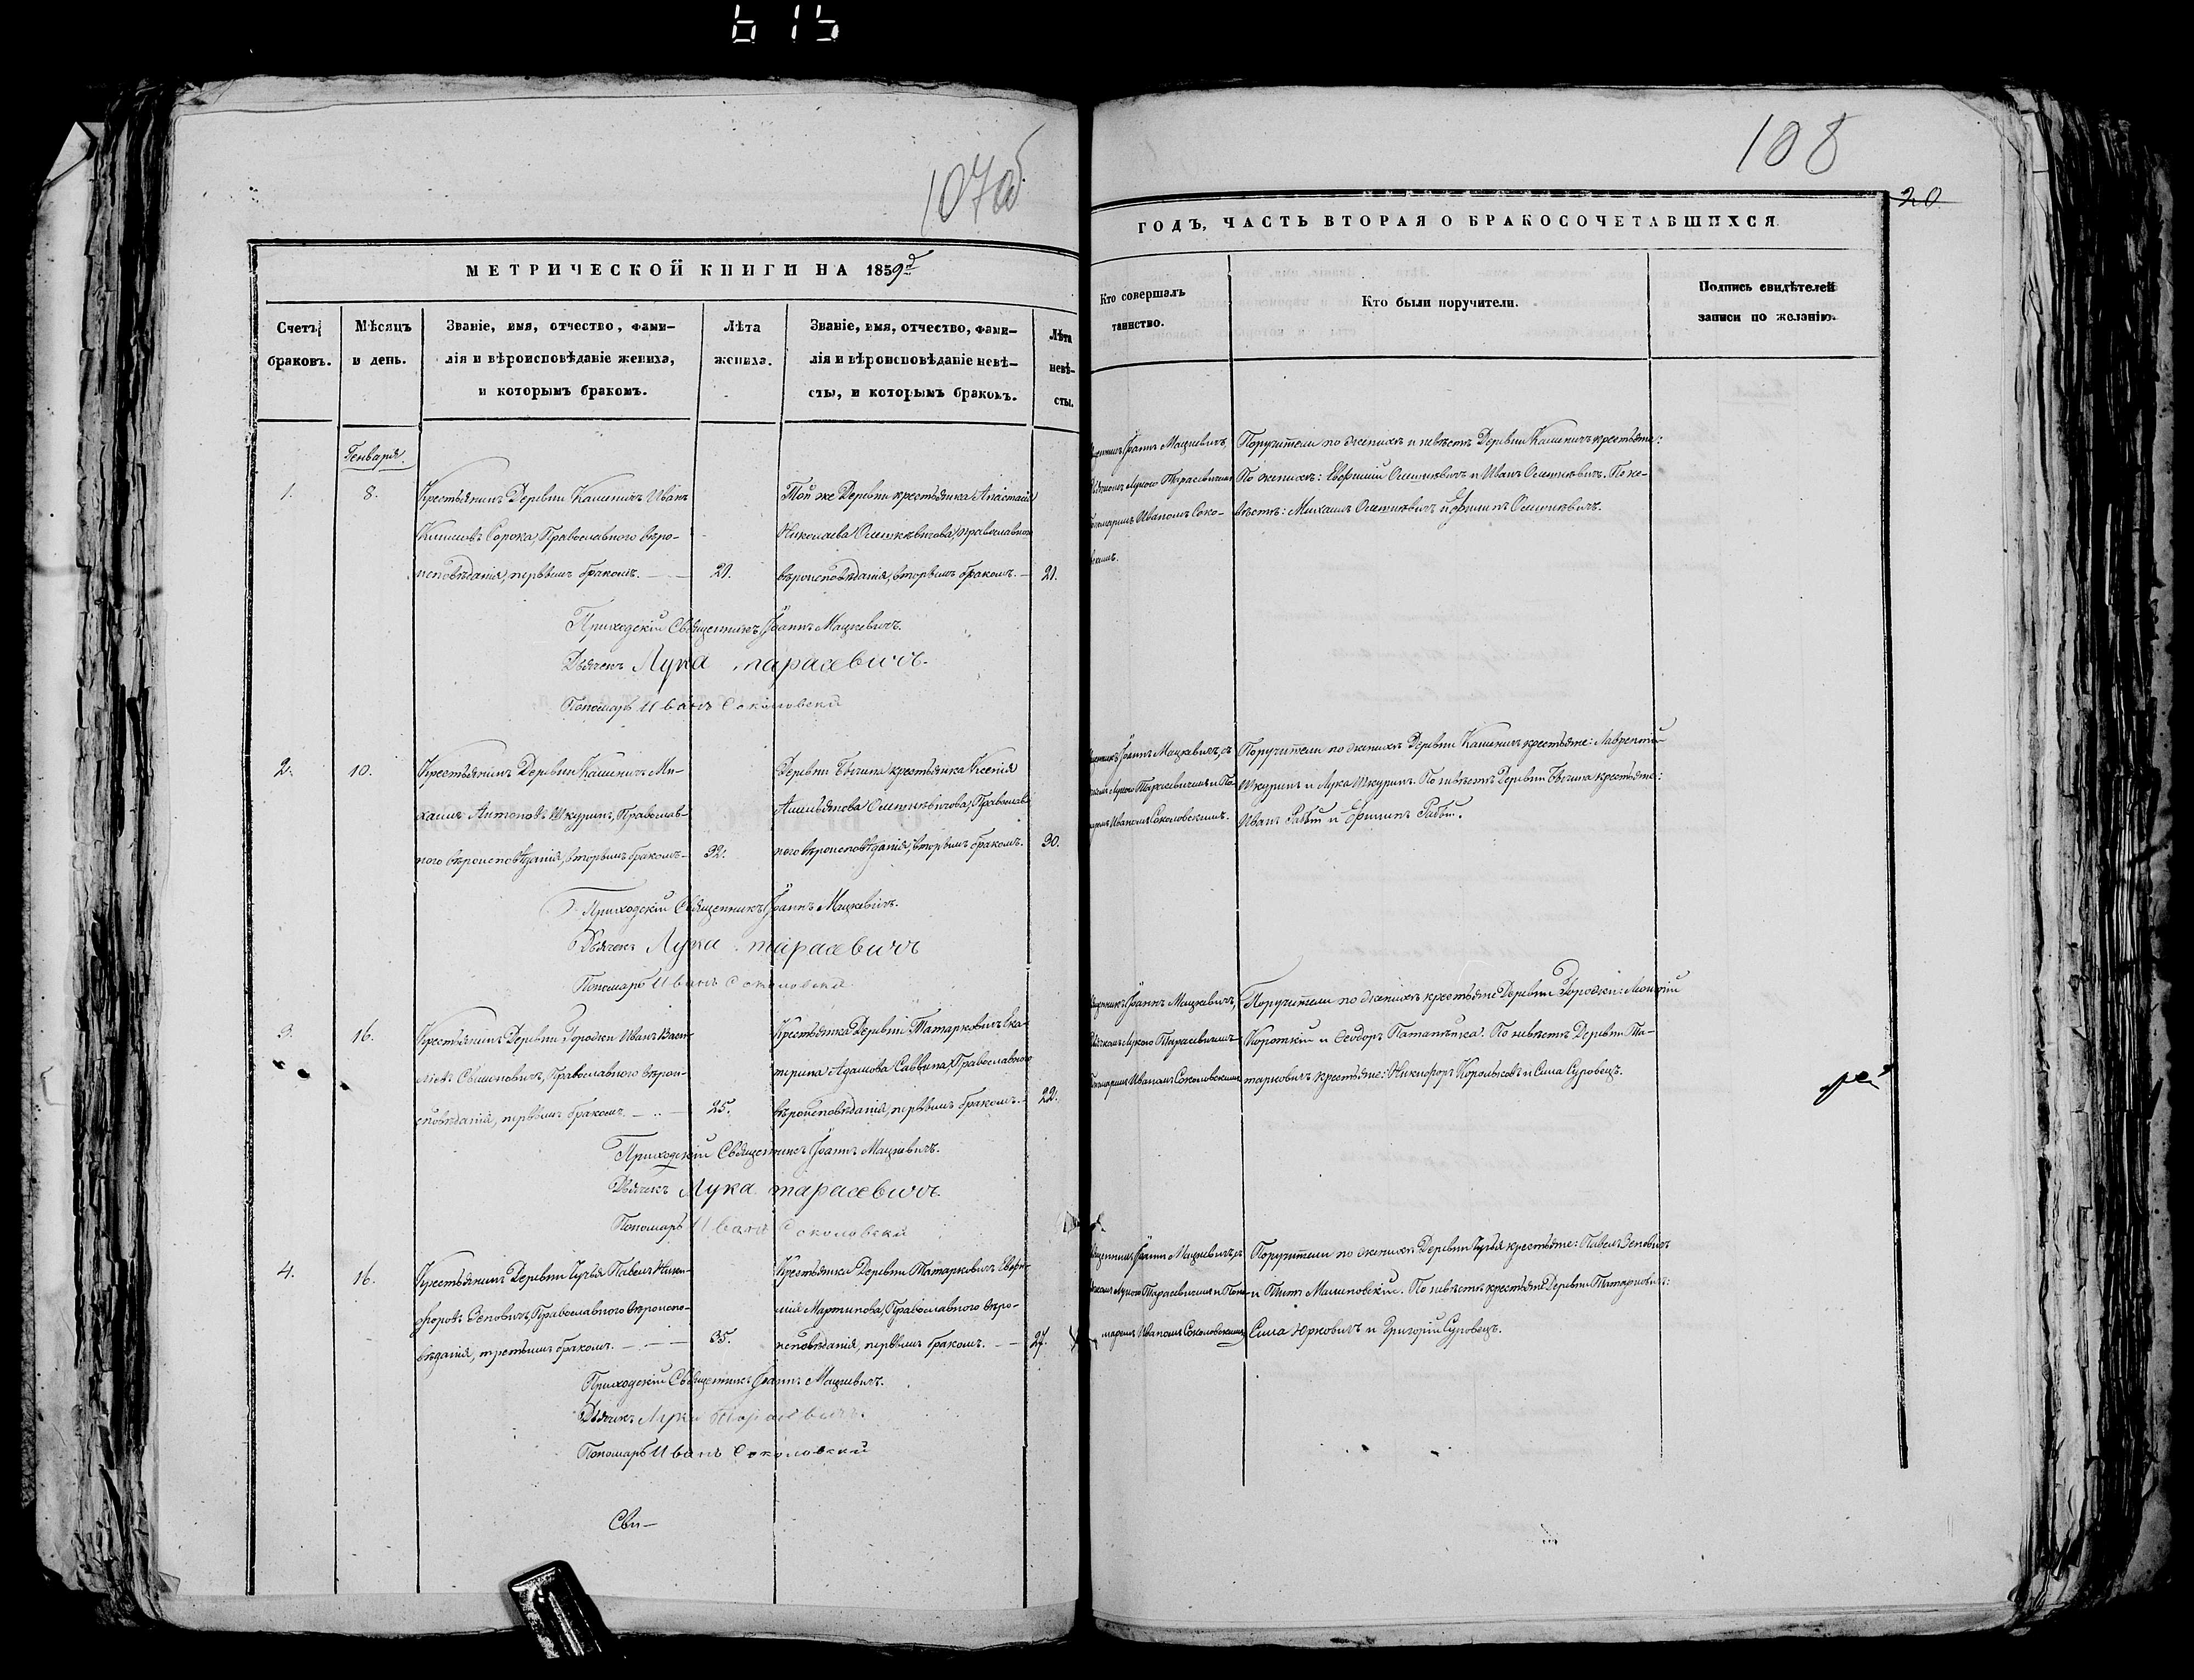 615
107об
108
20
МЕТРИЧЕСКОЙ КНИГИ НА 1859й
ГОДЪ, ЧАСТЬ ВТОРАЯ О БРАКОСОЧЕТАВШИХСЯ.
Счетъ браковъ.
Мѣсяцъ и день.
Званіе, имя, отчество, фами-
лія и вѣроисповѣданіе жениха,
и которымъ бракомъ.
Лѣта жениха.
Званіе, имя, отчество, фами-
лія и вѣроисповѣданіе невѣ-
сты, и которымъ бракомъ.
Лѣта невѣ-
сты.
Кто совершалъ
таинство.
Кто были поручители.
Подпись свидѣтелей
записи по желанію.
Генваря.
1.
8.
Крестьянинъ Деревни Кашеничъ Иванъ
Климовъ Сорока, Православнаго вѣро-
исповѣданія, первымъ бракомъ.
21.
Той же Деревни крестьянка Анастасія
Николаева Олешкевичова, православнаго
вѣроисповѣданія, вторымъ бракомъ.
21.
Іоаннъ Мацкевичъ,
Лукою Тарасевичемъ
Иваномъ Соко-
Поручители по женихѣ и невѣстѣ Деревни Кашеничъ крестьяне:
По женихѣ: Евфимій Олешкевичъ и Иванъ Олешкевичъ. По не-
вѣстѣ: Михаилъ Олешкевичъ и Филипъ Олешкевичъ.
Приходскій Священникъ Іоаннъ Мацкевичъ.
Дьячекъ Лука тарасевичъ.
Пономарь Иванъ Соколовскій
2.
10.
Крестьянинъ Деревни Кашеничъ Ми-
хаилъ Антоновъ Шкуринъ, Православ-
наго вѣроисповѣданія, вторымъ бракомъ
32.
Деревни крестьянка Ксенія
Олешкевичова, Православ-
наго вѣроисповѣданія, вторымъ бракомъ.
30.
Іоаннъ Мацкевичъ, съ
Лукою Тарасевичемъ и По-
Иваномъ Соколовскимъ.
Поручители по женихѣ Деревни Кашеничъ крестьяне: Лаврентій
Шкуринъ и Лука Шкуринъ. По невѣстѣ Деревни крестьяне:
Иванъ и
Приходскій Священникъ Іоаннъ Мацкевичъ.
Дьячекъ Лука тарасевичъ
Пономарь Иванъ Соколовскій
3.
16.
Крестьянинъ Деревни Городки Иванъ Васи-
ліевъ Православнаго вѣрои-
сповѣданія, первымъ бракомъ.
25.
Крестьянка Деревни Татарковичъ Ека-
терина Адамова Саввина, Православнаго
вѣроисповѣданія, первымъ бракомъ.
22.
Іоаннъ Мацкевичъ,
Лукою Тарасевичемъ
Иваномъ Соколовскимъ
Поручители по женихѣ крестьяне Деревни Городки:
Короткій и Ѳеодоръ По невѣстѣ Деревни Та-
тарковичъ крестьяне: Никифоръ и Сила Суровецъ.
Приходскій Священникъ Іоаннъ Мацкевичъ.
Дьячекъ Лука тарасевичъ.
Пономарь Иванъ Соколовскій
4.
16.
Крестьянинъ Деревни Павелъ Ники-
форовъ Зеновичъ, Православнаго вѣроиспо-
вѣданія, третьимъ бракомъ.
35.
Крестьянка Деревни Татарковичъ Евфи-
мія Мартинова, Православнаго вѣро-
исповѣданія, первымъ бракомъ.
27.
Іоаннъ Мацкевичъ, съ
Лукою Тарасевичемъ и Поно-
маремъ Иваномъ Соколовскимъ
Поручители по женихѣ Деревни крестьяне: Павелъ Зеновичъ
и Титъ Малиновскій. По невѣстѣ крестьяне Деревни Татарковичъ:
Сила Юрковичъ и Григорій Суровецъ.
Приходскій Священникъ Іоаннъ Мацкевичъ.
Дьячекъ Лука Тарасевичъ.
Пономарь Иванъ Соколовскій
Сви-